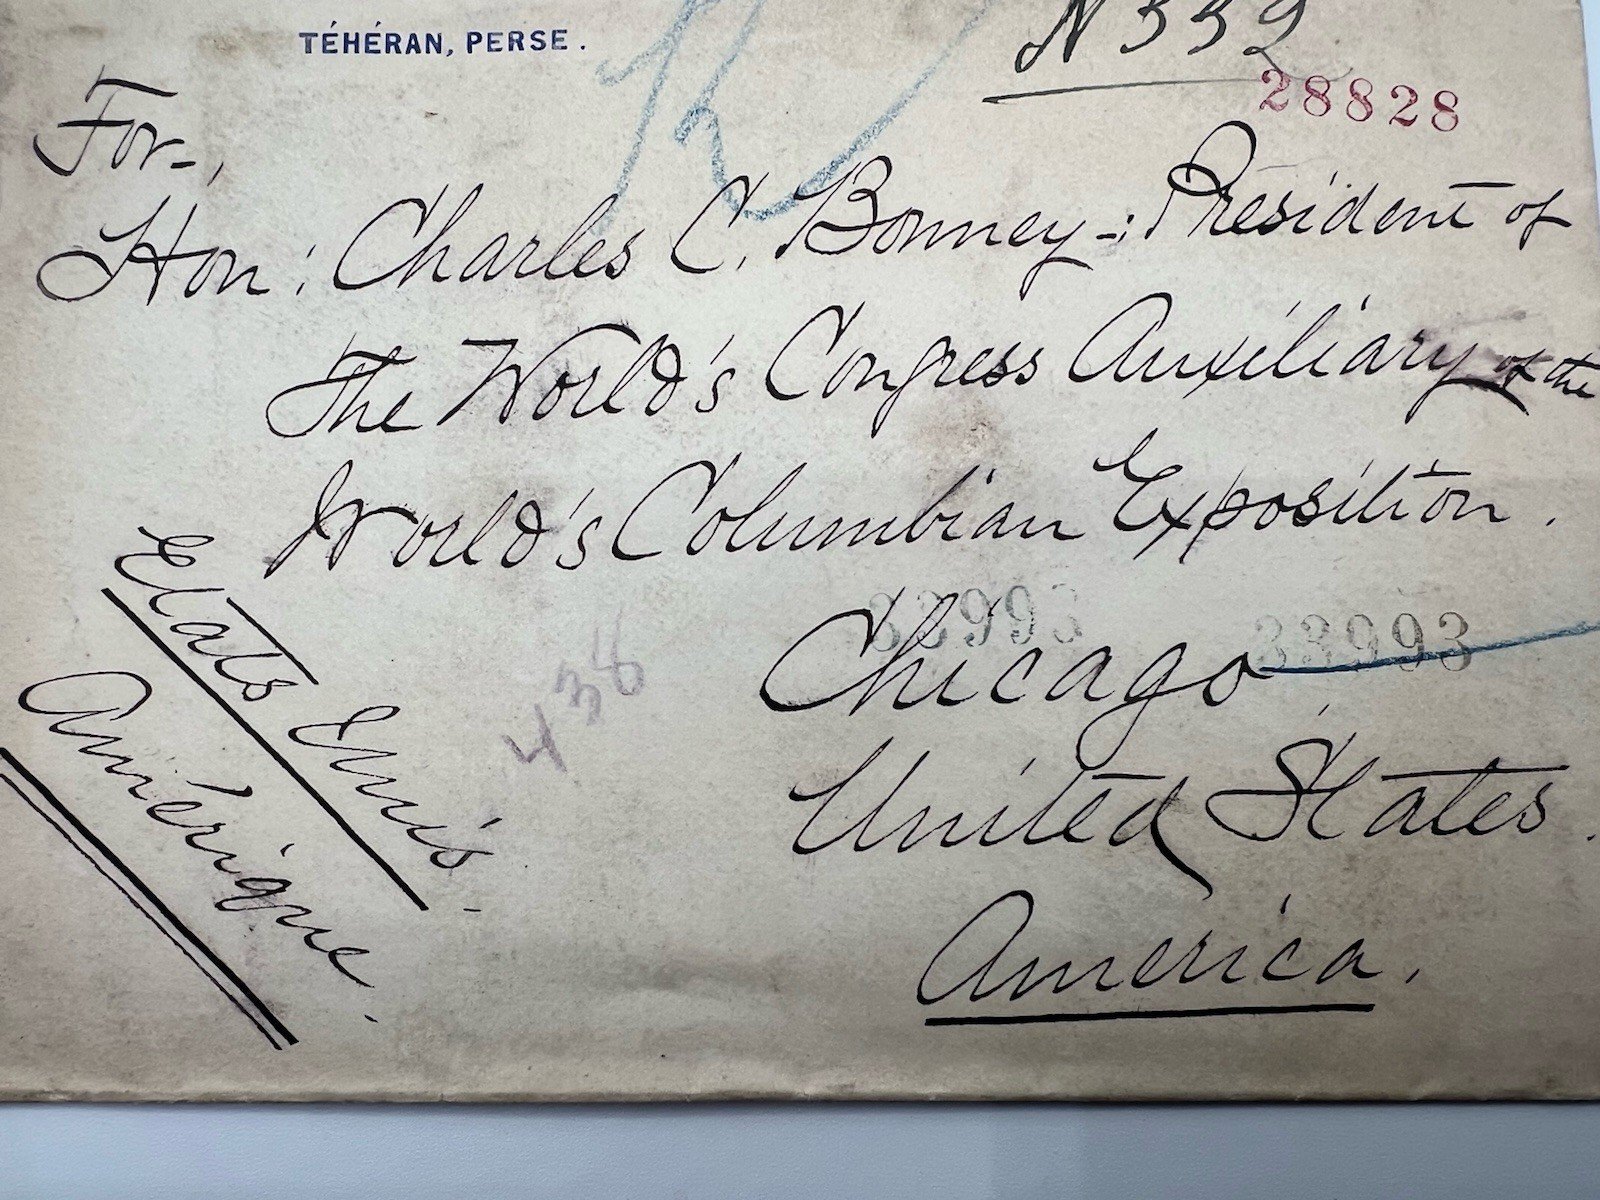 TÉHÉRAN, PERSE.
N 332
28828
For-,
Hon: Charles C. Bonney-: President of
The World's Congress Auxiliary of the
World's Columbian Exposition.
33993 33993
Chicago,
United States.
America.
Etats Unis.
Amérique.
438